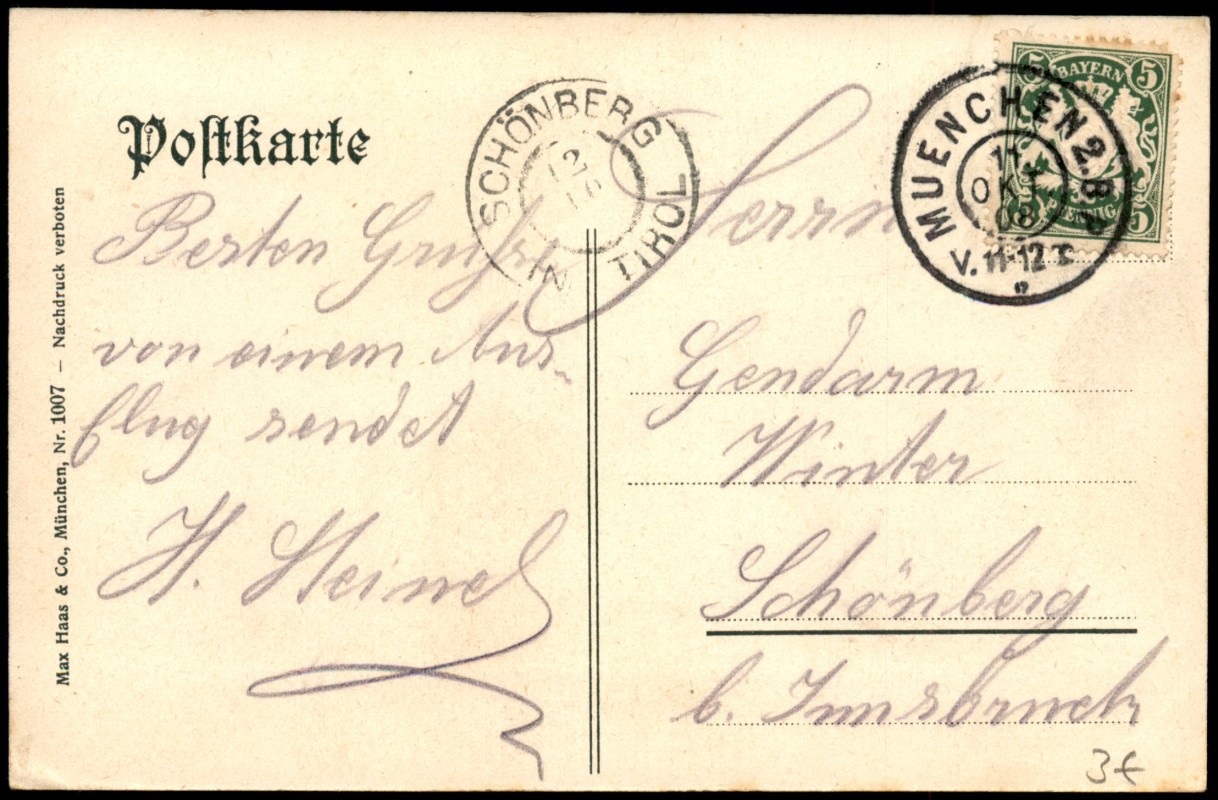 Postkarte
SCHÖNBERG
IN TIROL
MUENCHEN 2. B.P.
11
OKT
08
V. 11-12
5 BAYERN 5
PFENNIG 5
Besten Gruß
von einem Aus-
flug sendet
H. Steinel
Herrn
Gendarm
Winter
Schönberg
b. Innsbruck
Max Haas & Co., München, Nr. 1007 — Nachdruck verboten
3€